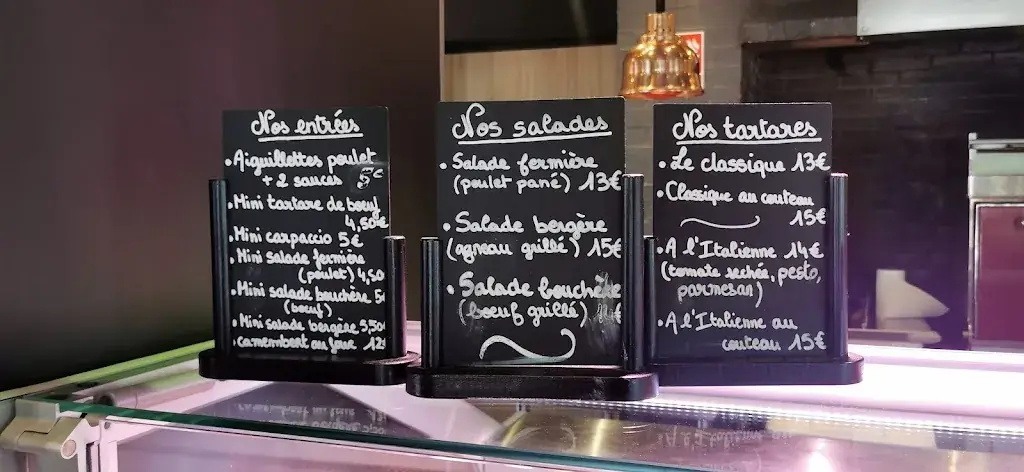 Nos entrées
• Aiguillettes poulet
+ 2 sauces 5€
• Mini tartare de bœuf
4,50€
• Mini carpaccio 5€
• Mini salade fermière
(poulet) 4,50
• Mini salade bouchère 5
(bœuf)
• Mini salade bergère 5,50
• camembert au four 12
Nos salades
• Salade fermière
(poulet pané) 13€
• Salade bergère
(agneau grillé) 15€
• Salade bouchère
(bœuf grillé)
Nos tartares
• Le classique 13€
• Classique au couteau
15€
• A l'Italienne 14€
(tomate sechée, pesto,
parmesan)
• A l'Italienne au
couteau 15€